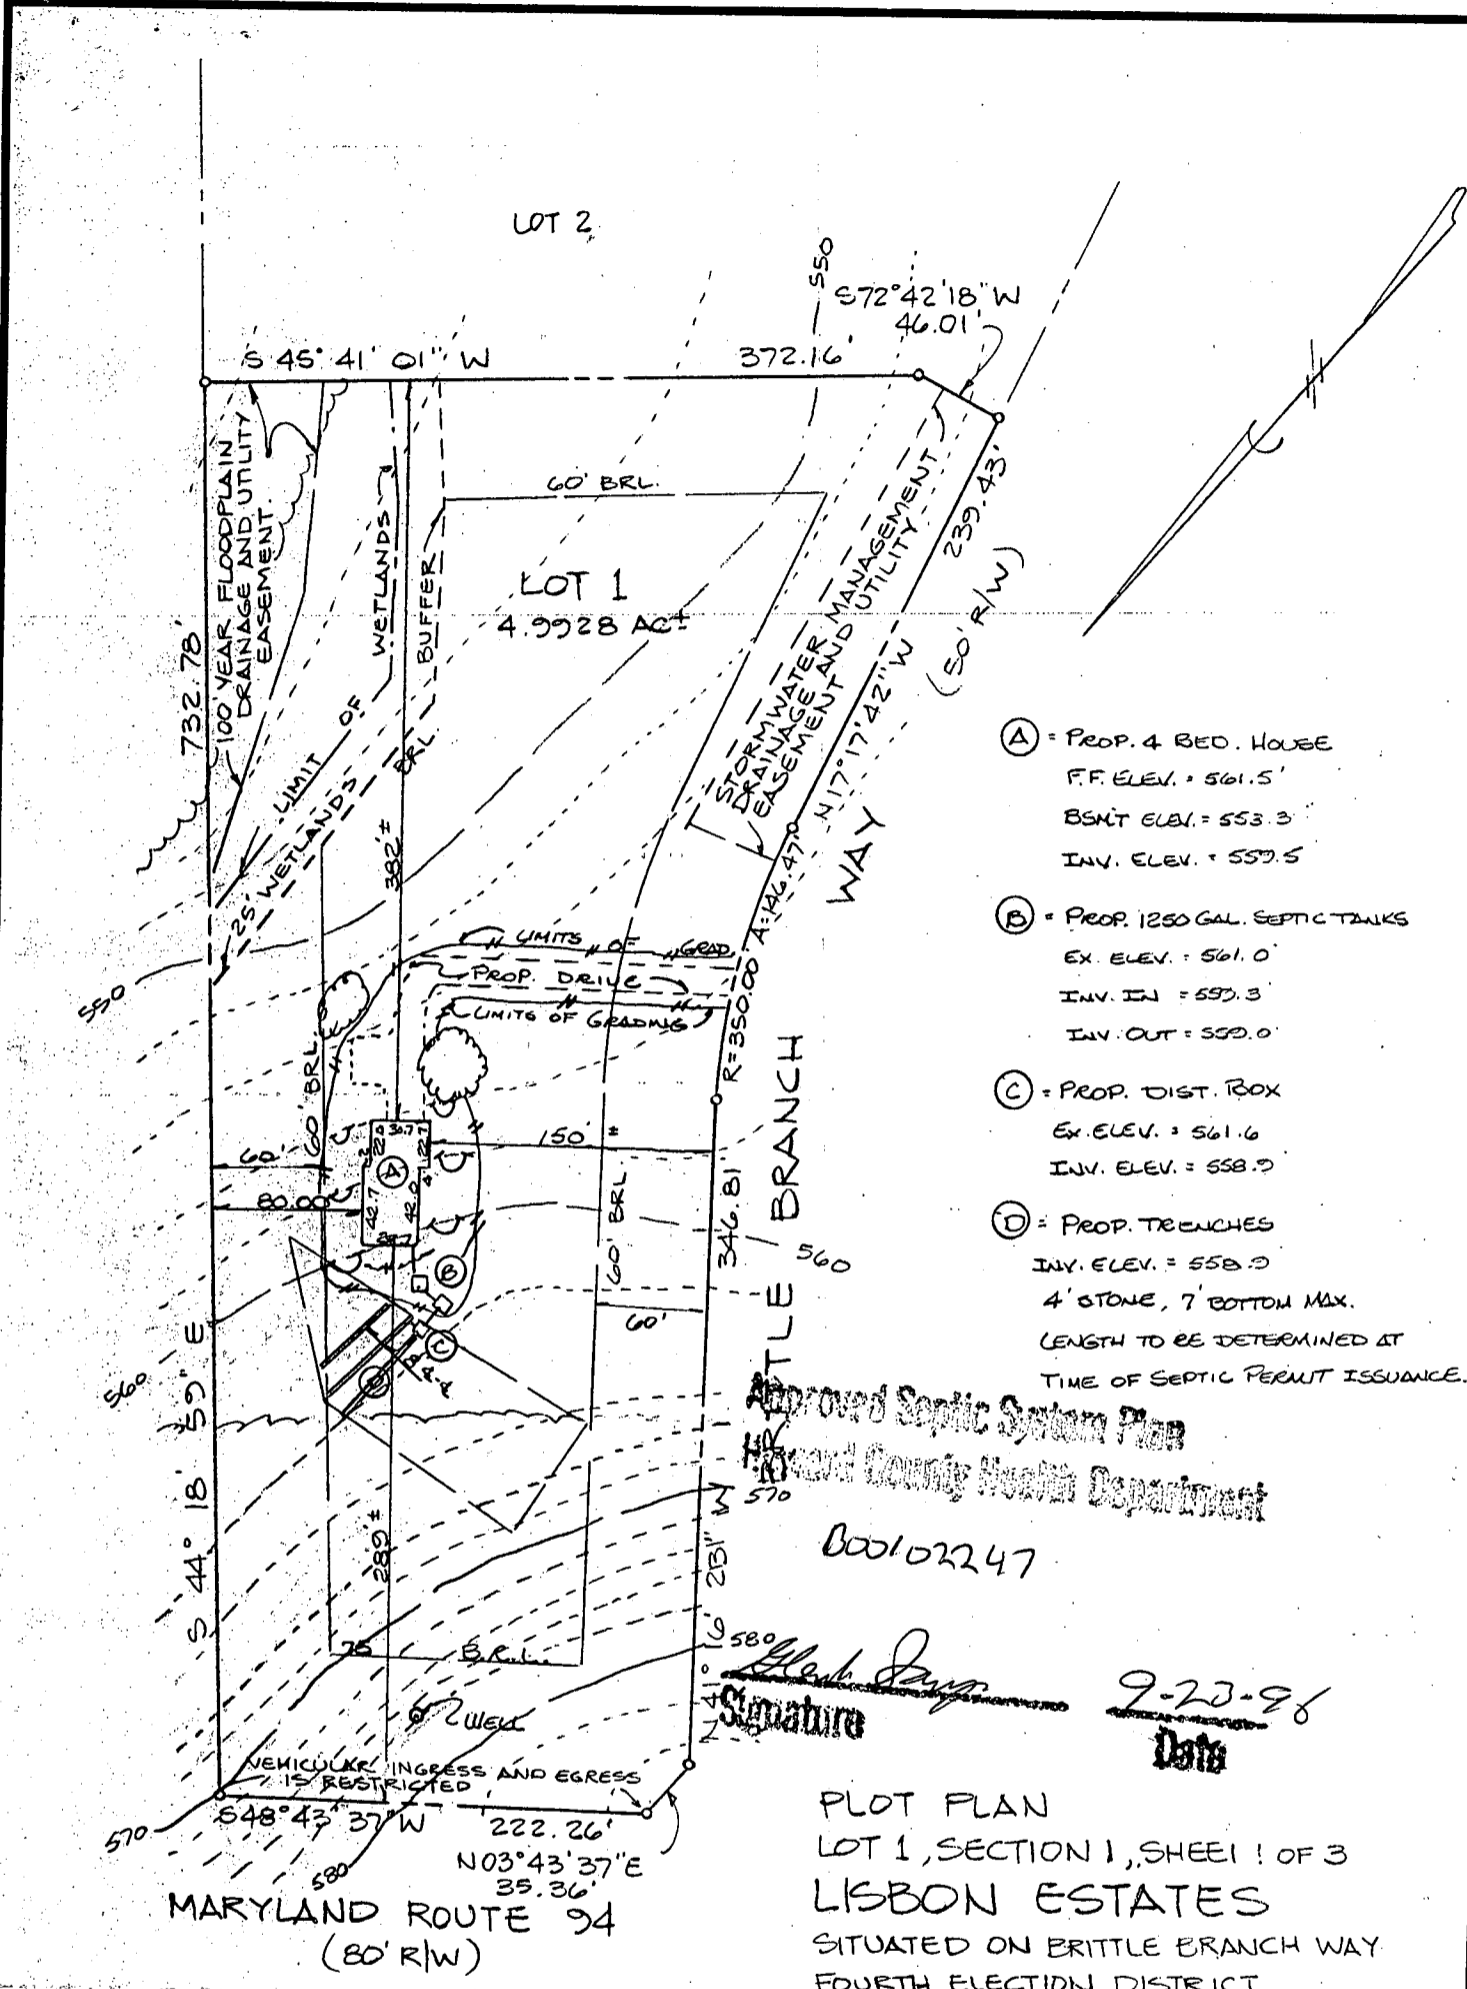 LOT 2
550
S72°42'18"W
46.01'
S 45° 41' 01" W
372.16'
100 YEAR FLOODPLAIN
DRAINAGE AND UTILITY
EASEMENT.
WETLANDS
BUFFER
60' BRL.
LOT 1
4.9928 AC±
732.78'
LIMIT OF
25' WETLANDS
BRL
382'±
STORMWATER MANAGEMENT
DRAINAGE AND UTILITY
EASEMENT
239.43'
(50' R/W)
N17°17'42"W
A=146.47'
R=350.00'
WAY
BRANCH
LIMITS OF GRAD.
PROP. DRIVE
LIMITS OF GRADING
550
60' BRL.
60'
80.00
22.0
36.7
22.7
A
42.7
42.0
4
28.7
150'±
60' BRL
60'
346.81'
B
C
D
560
560
S 44° 18' 59" E
289'±
570
N 41° 16' 23" W
580
75 B.R.L.
WELL
VEHICULAR INGRESS AND EGRESS
IS RESTRICTED
S48°43'37"W
222.26'
N03°43'37"E
35.36'
570
580
MARYLAND ROUTE 94
(80' R/W)
A = PROP. 4 BED. HOUSE
F.F. ELEV. = 561.5'
BSMT ELEV. = 553.3
INV. ELEV. = 559.5
B = PROP. 1250 GAL. SEPTIC TANKS
EX. ELEV. = 561.0'
INV. IN = 559.3
INV. OUT = 559.0
C = PROP. DIST. BOX
EX. ELEV. = 561.6
INV. ELEV. = 558.9
D = PROP. TRENCHES
INV. ELEV. = 558.9
4' STONE, 7' BOTTOM MAX.
LENGTH TO BE DETERMINED AT
TIME OF SEPTIC PERMIT ISSUANCE.
Approved Septic System Plan
Howard County Health Department
B00102247
Signature
9-23-96
Date
PLOT PLAN
LOT 1, SECTION 1, SHEET 1 OF 3
LISBON ESTATES
SITUATED ON BRITTLE BRANCH WAY
FOURTH ELECTION DISTRICT